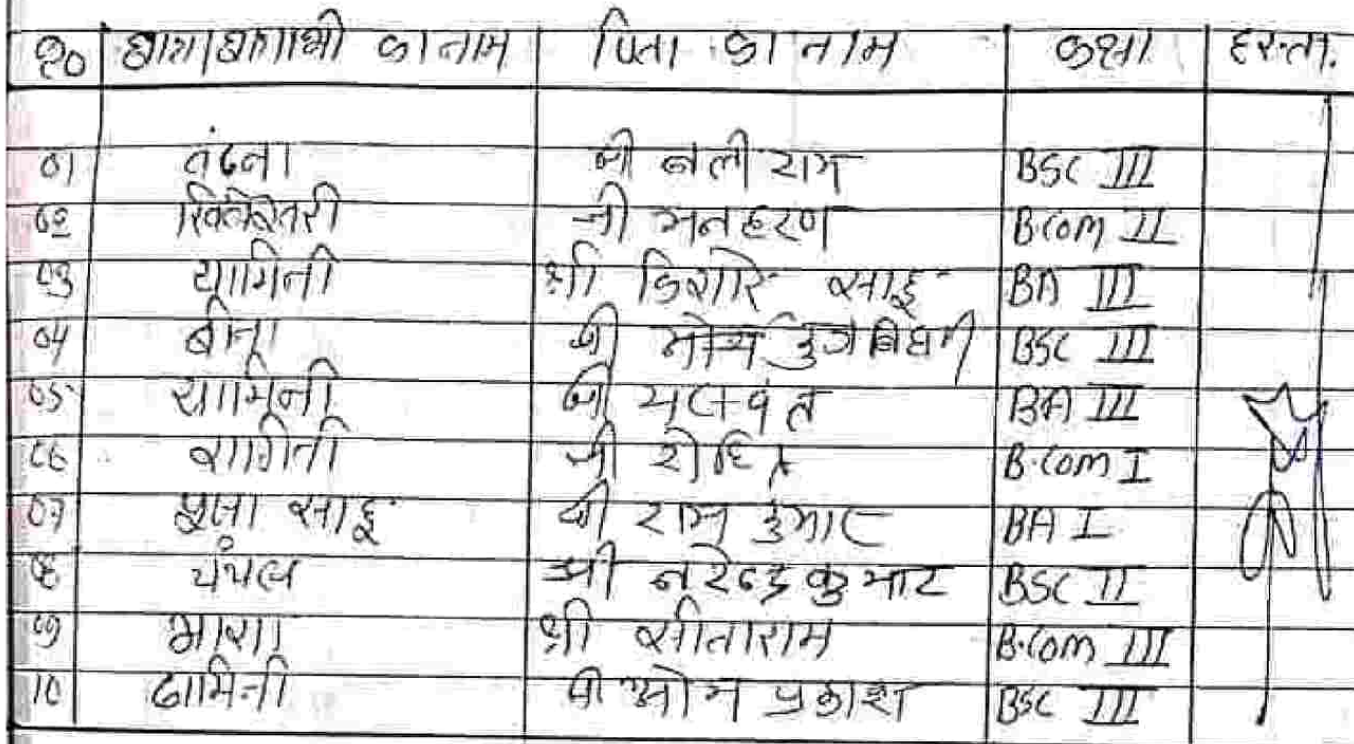 क्र० छात्र/छात्राओं का नाम पिता का नाम कक्षा हस्ता.
01 वंदना श्री बली राम BSC III
02 श्री मनहरण B.Com II
03 यामिनी श्री किशोर साहू BA III
04 बीना श्री BSC III
05 यामिनी श्री यशवंत BA III
06 श्री रोहित B.Com I
07 पूजा साहू श्री राम कुमार BA I
08 चंचल श्री नरेन्द्र कुमार BSC II
09 श्री सीताराम B.Com III
10 दामिनी श्री ओम प्रकाश BSC III